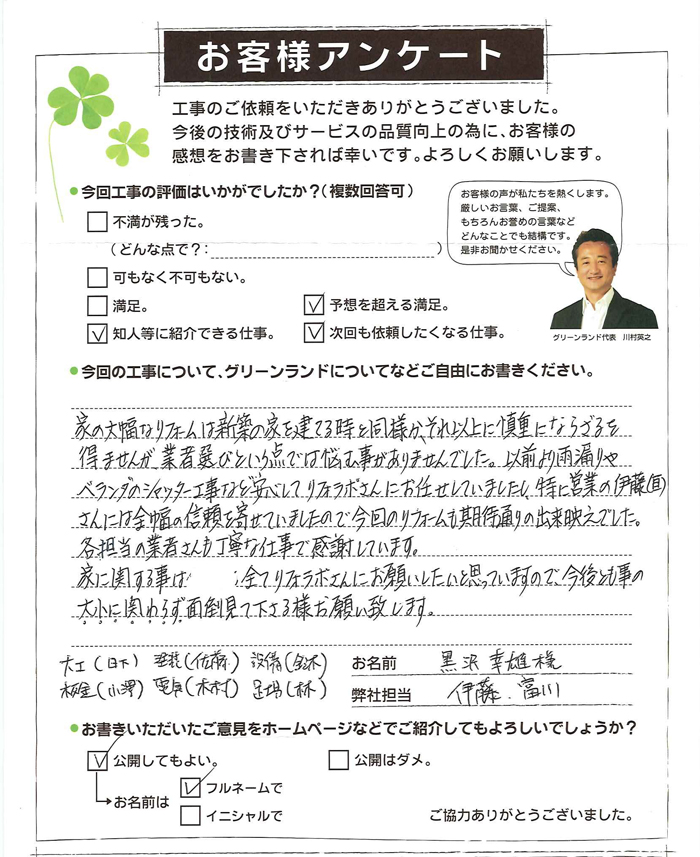 お客様アンケート
工事のご依頼をいただきありがとうございました。
今後の技術及びサービスの品質向上の為に、お客様の
感想をお書き下されば幸いです。よろしくお願いします。
今回工事の評価はいかがでしたか？（複数回答可）
不満が残った。
（どんな点で？：　）
可もなく不可もない。
満足。
予想を超える満足。
知人等に紹介できる仕事。
次回も依頼したくなる仕事。
お客様の声が私たちを熱くします。
厳しいお言葉、ご提案、
もちろんお誉めの言葉など
どんなことでも結構です。
是非お聞かせください。
グリーンランド代表　川村英之
今回の工事について、グリーンランドについてなどご自由にお書きください。
家の大幅なリフォームは新築の家を建てる時と同様か、それ以上に慎重にならざるを
得ませんが業者選びという点では悩む事がありませんでした。以前より雨漏りや
ベランダのシャッター工事など安心してリフォラボさんにお任せしていましたし、特に営業の伊藤(直)
さんには全幅の信頼を寄せていましたので今回のリフォームも期待通りの出来映えでした。
各担当の業者さんも丁寧な仕事で感謝しています。
家に関する事は　全てリフォラボさんにお願いしたいと思っていますので、今後とも事の
大小に関わらず面倒見て下さる様お願い致します。
大工(日下)　塗装(佐藤)　設備(鈴木)
板金(小澤)　電気(木村)　足場(林)
お名前　黒沢幸雄様
弊社担当　伊藤・富川
お書きいただいたご意見をホームページなどでご紹介してもよろしいでしょうか？
公開してもよい。
公開はダメ。
お名前は
フルネームで
イニシャルで
ご協力ありがとうございました。